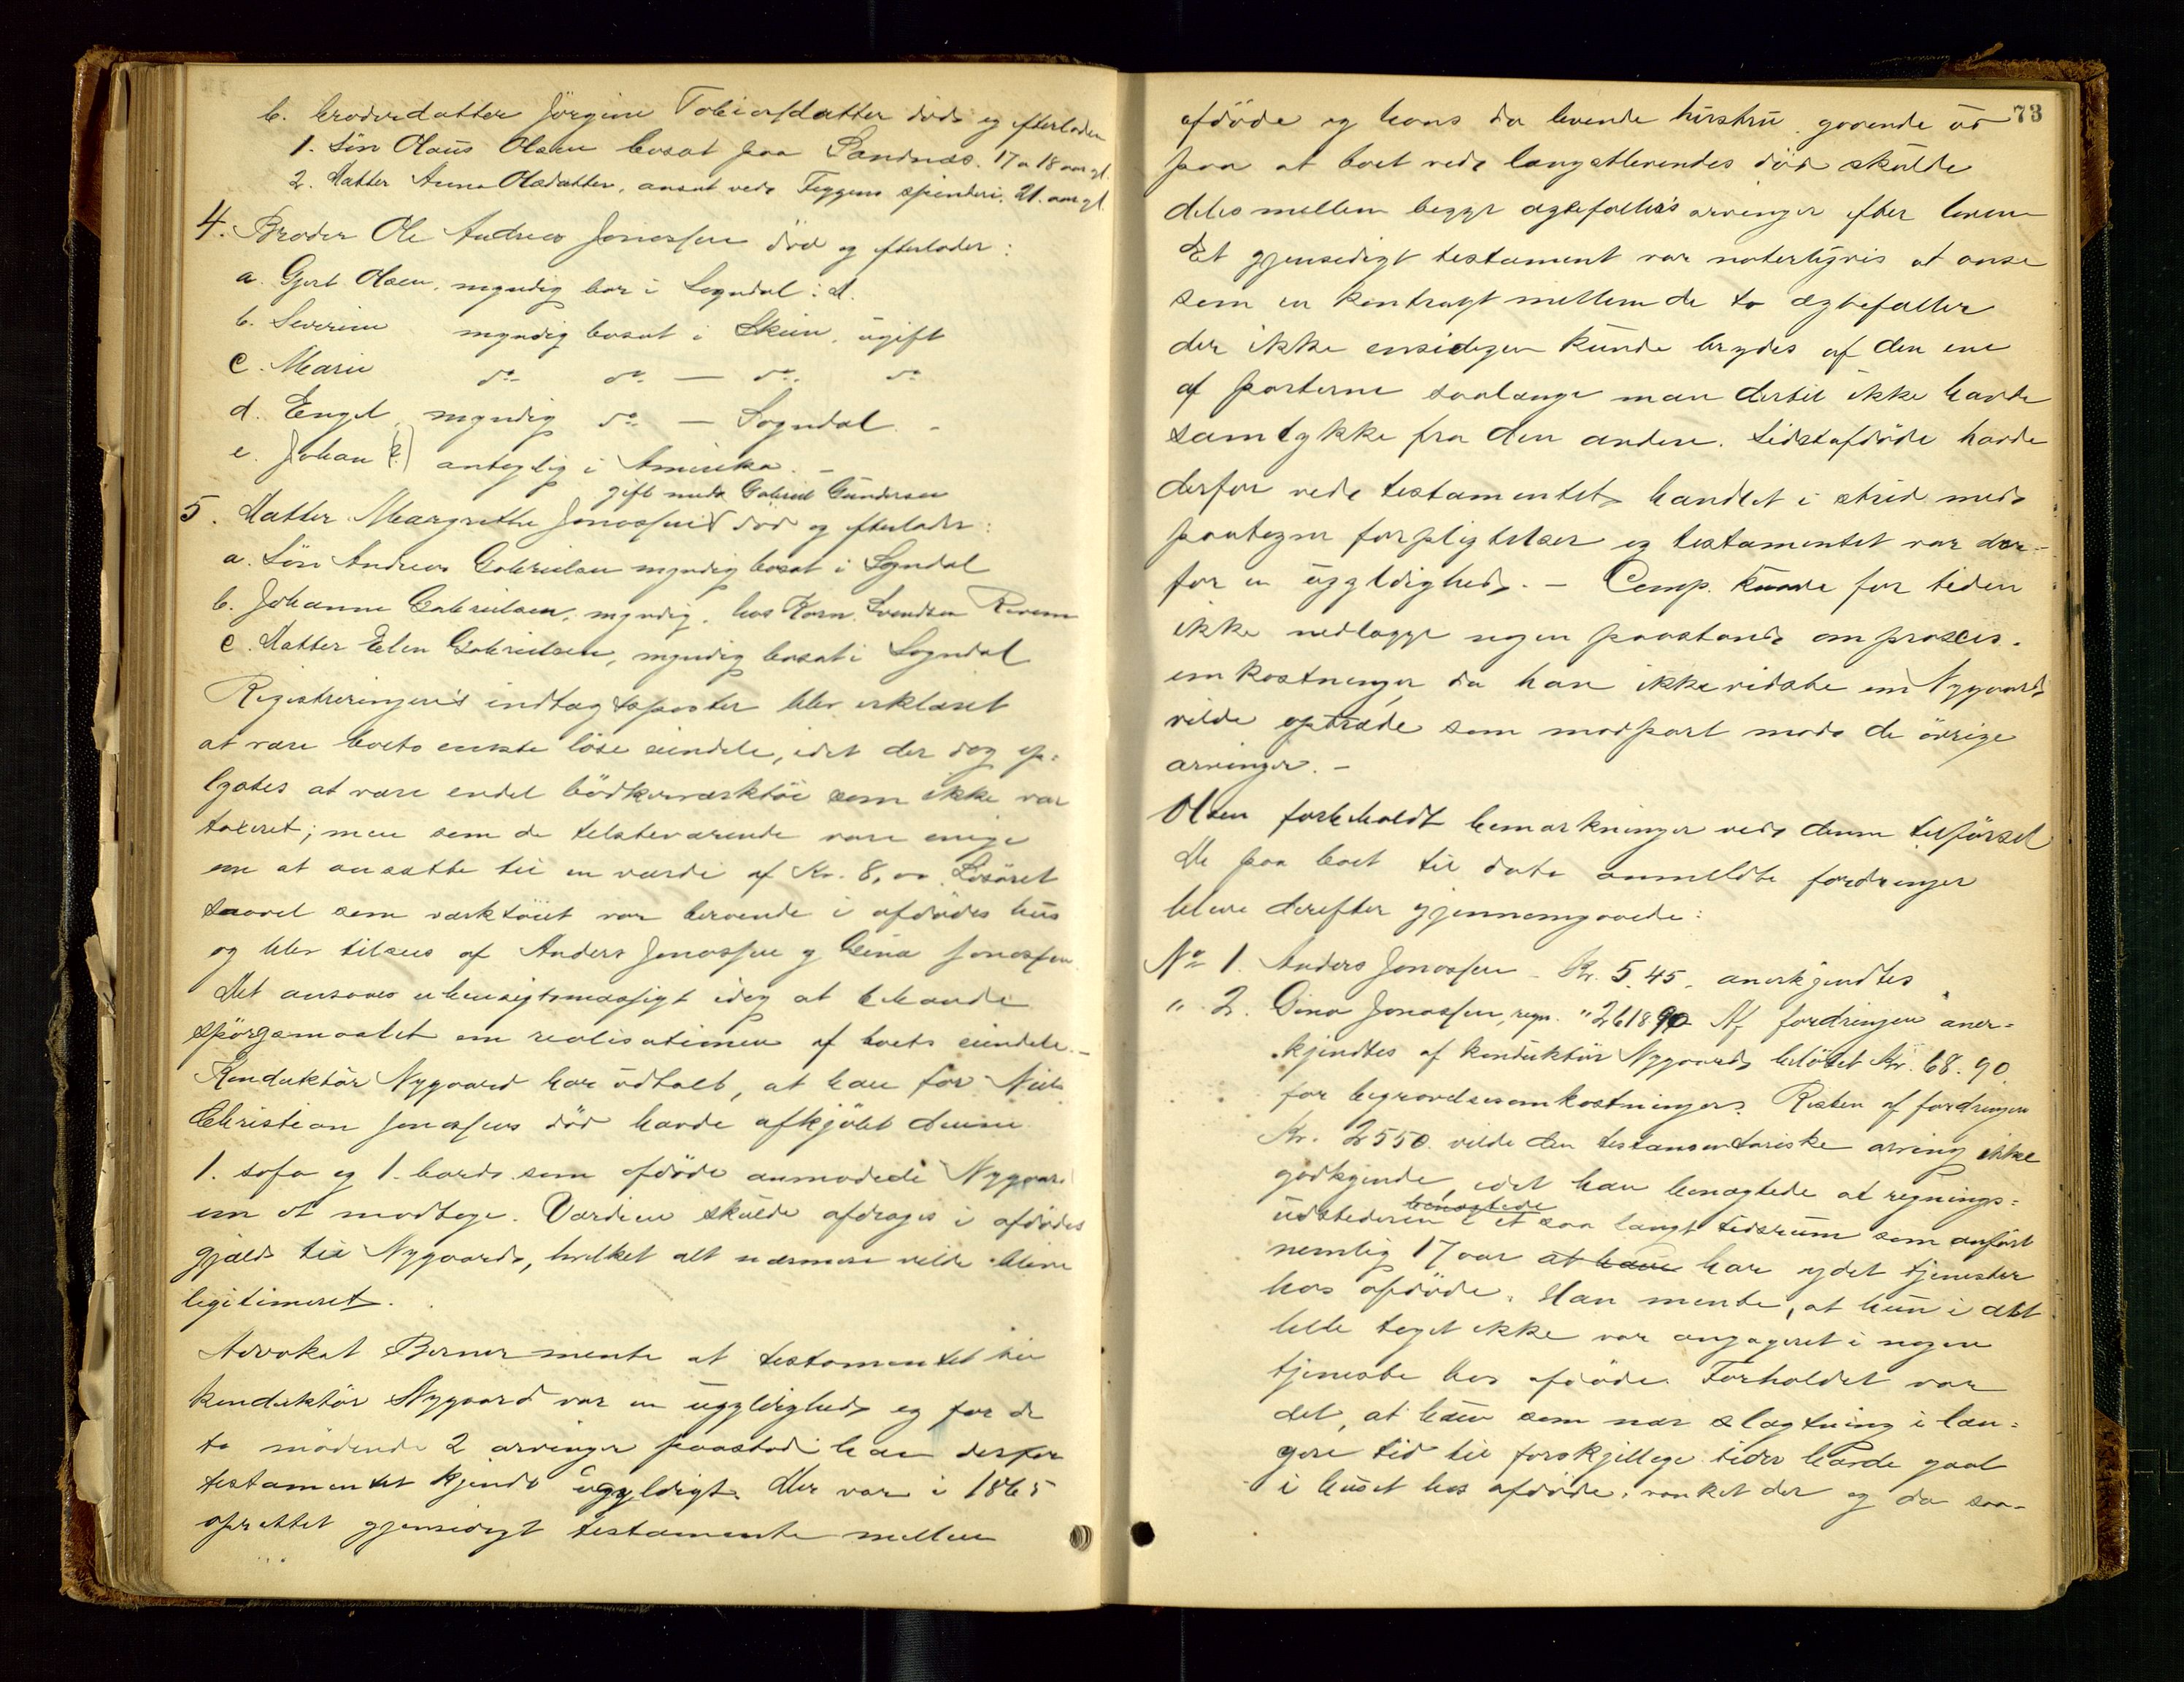 b. broderdatter Jörgine Tobiasdatter död og efterlader
1. Sön Olaus Olsen bosat paa Sandnæs. 17 a 18 aar gl.
2. Datter Anna Olsdatter, ansat ved Figgens spinderi. 21. aar gl.
4. Broder Ole Andreas Jonassen död og efterlader:
a. Gjert Olsen, myndig bor i Sogndal: d.
b. Severine myndig bosat i Skien, ugift
c. Marie do do — do do
d. Engel, myndig do — Sogndal. -
e. Johan (?) antaglig i Amerika. -
gift med Gabriel Gundersen
5. Datter Margrethe Jonassen död og efterlader:
a. Sön Andreas Gabrielsen myndig bosat i Sogndal
b. Johanne Gabrielsen, myndig, hos Korn. Svendsen
c. Datter Elen Gabrielsen, myndig bosat i Sogndal
Registreringens indtægtsposter blev erklæret
at være boets eneste löse eiendele, idet der dog op-
lystes at være endel bödkerværktöi som ikke var
taxeret; men som de tilstedeværende vare enige
om at ansætte til en værdi af Kr. 8,00. Lösöret
saavel som værktöiet var beroende i afdödes hus
og blev tilsees af Anders Jonassen og Gina Jonassen
Det ansaaes uhensigtsmæssigt idag at behandle
spörgsmaalet om realisationen af boets eiendele. -
Konduktör Nygaard har udtalt, at han för Niels
Christian Jonassens död havde afkjöbt denne
1. sofa og 1. bord som afdöde anmodede Nygaard
om at modtage. Værdien skulde afdrages i afdödes
gjæld til Nygaard, hvilket alt nærmere vilde blive
legitimeret.
Advokat Berner mente at testamentet til
konduktör Nygaard var en ugyldighed og for de
to mödende 2 arvinger paastod han derfor
testamentet kjendt ugyldigt. Der var i 1865
oprettet gjensidigt testamente mellem
73
afdöde og hans da levende hustru, gaaende ud
paa at boet ved længstlevendes död skulde
deles mellem begge ægtefællers arvinger efter loven
Et gjensidigt testament var naturligvis at anse
som en kontrakt mellem de to ægtefæller
der ikke ensidigen kunde brydes af den ene
af parterne saalænge man dertil ikke havde
samtykke fra den anden. Sidstafdöde havde
derfor ved testamentet handlet i strid med
paatagne forpligtelser og testamentet var der-
for en ugyldighed. - Comp. kunde for tiden
ikke nedlægge nogen paastand om proces-
omkostninger, da han ikke vidste om Nygaard
vilde optræde som modpart mod de övrige
arvinger. -
Olsen forbeholdt bemærkninger ved denne tilförsel
De paa boet til dato anmeldte fordringer
bleve derefter gjennemgaaede:
No 1. Anders Jonassen - Kr. 5.45. anerkjendtes
" 2. Gina Jonassen, regn. " 2618 90 Af fordringen aner-
kjendtes af konduktör Nygaard belöbet Kr. 68.90.
for begravelsesomkostninger. Resten af fordringen
Kr. 2550 vilde den testamentariske arving ikke
godkjende, idet han benægtede at regnings-
benægtede
udstederen i et saa langt tidsrum som anfört
nemlig 17 aar at have har ydet tjenester
hos afdöde. Han mente, at hun i det
hele taget ikke var engageret i nogen
tjeneste hos afdöde. Forholdet var
det, at hun som nær slægtning i læn-
gere tid til forskjellige tider havde gaat
i huset hos afdöde, vanket der og da saa-